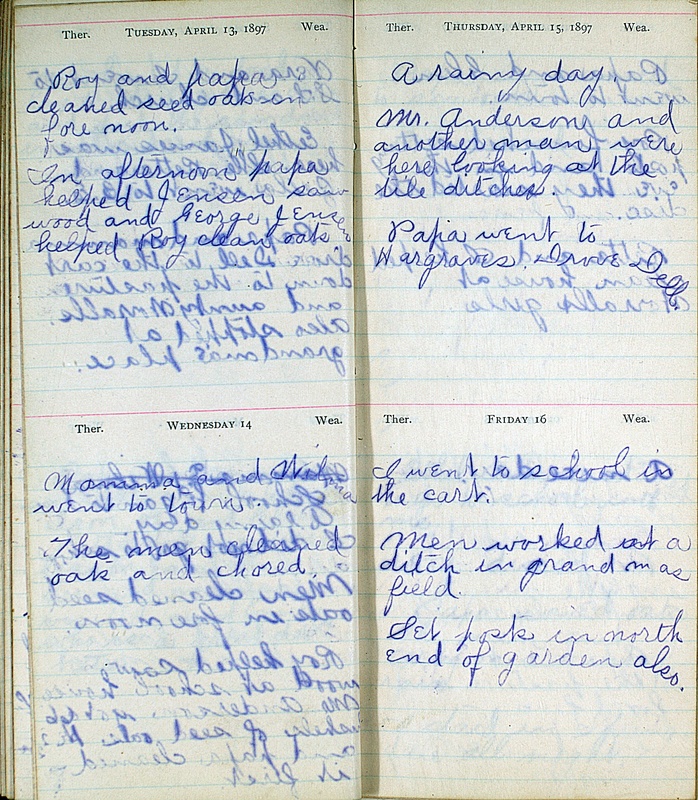 Ther. TUESDAY, APRIL 13, 1897 Wea.
Roy and papa
cleaned seed oats in
fore noon.
In afternoon papa
helped Jensen saw
wood and George Jensen
helped Roy clean oats
Ther. WEDNESDAY 14 Wea.
Mamma and Wilma
went to town.
The men cleaned
oats and chored.
Ther. THURSDAY, APRIL 15, 1897 Wea.
A rainy day
Mr. Anderson and
another man were
here looking at the
tile ditches.
Papa went to
Hargraves. Drove Dell.
Ther. FRIDAY 16 Wea.
I went to school in
the cart.
Men worked at a
ditch in grandmas
field.
Set posts in north
end of garden also.